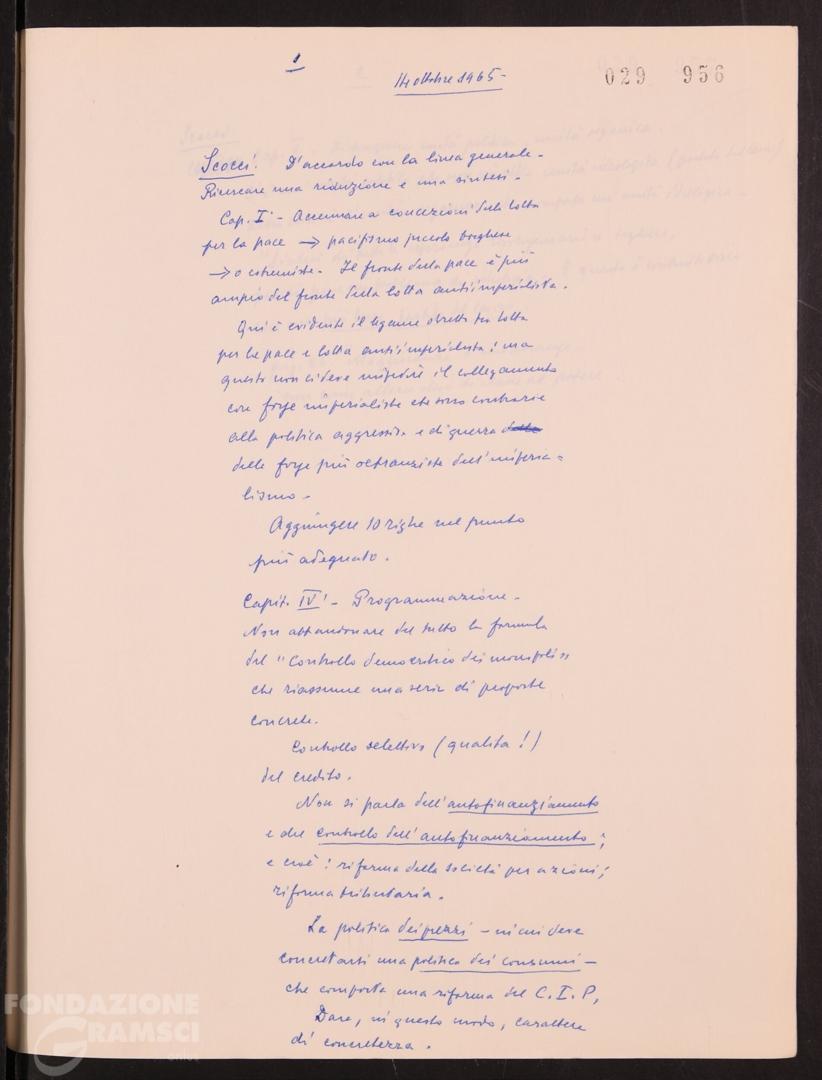 1
14 ottobre 1965 -
029 956
Scocci: D'accordo con la linea generale -
Ricercare una riduzione e una sintesi -
Cap. I° - Accennare a concezioni della lotta
per la pace → pacifismo piccolo borghese
→ o estremiste - Il fronte della pace è più
ampio del fronte della lotta antiimperialista.
Qui è evidente il legame stretto tra lotta
per la pace e lotta antiimperialista; ma
questo non ci deve impedire il collegamento
con forze imperialiste che sono contrarie
alla politica aggressiva e di guerra delle
delle forze più oltranziste dell'imperia=
lismo -
Aggiungere 10 righe nel punto
più adeguato.
Capit. IV° - Programmazione -
Non abbandonare del tutto la formula
del "Controllo democratico dei monopoli"
che riassume una serie di proposte
concrete.
Controllo selettivo (qualità!)
del credito.
Non si parla dell'autofinanziamento
e del controllo dell'autofinanziamento;
e cioè: riforma delle società per azioni;
riforma tributaria.
La politica dei prezzi - in cui deve
concretarsi una politica dei consumi -
che comporta una riforma del C.I.P.
Dare, in questo modo, carattere
di concretezza.
FONDAZIONE
GRAMSCI
onlus